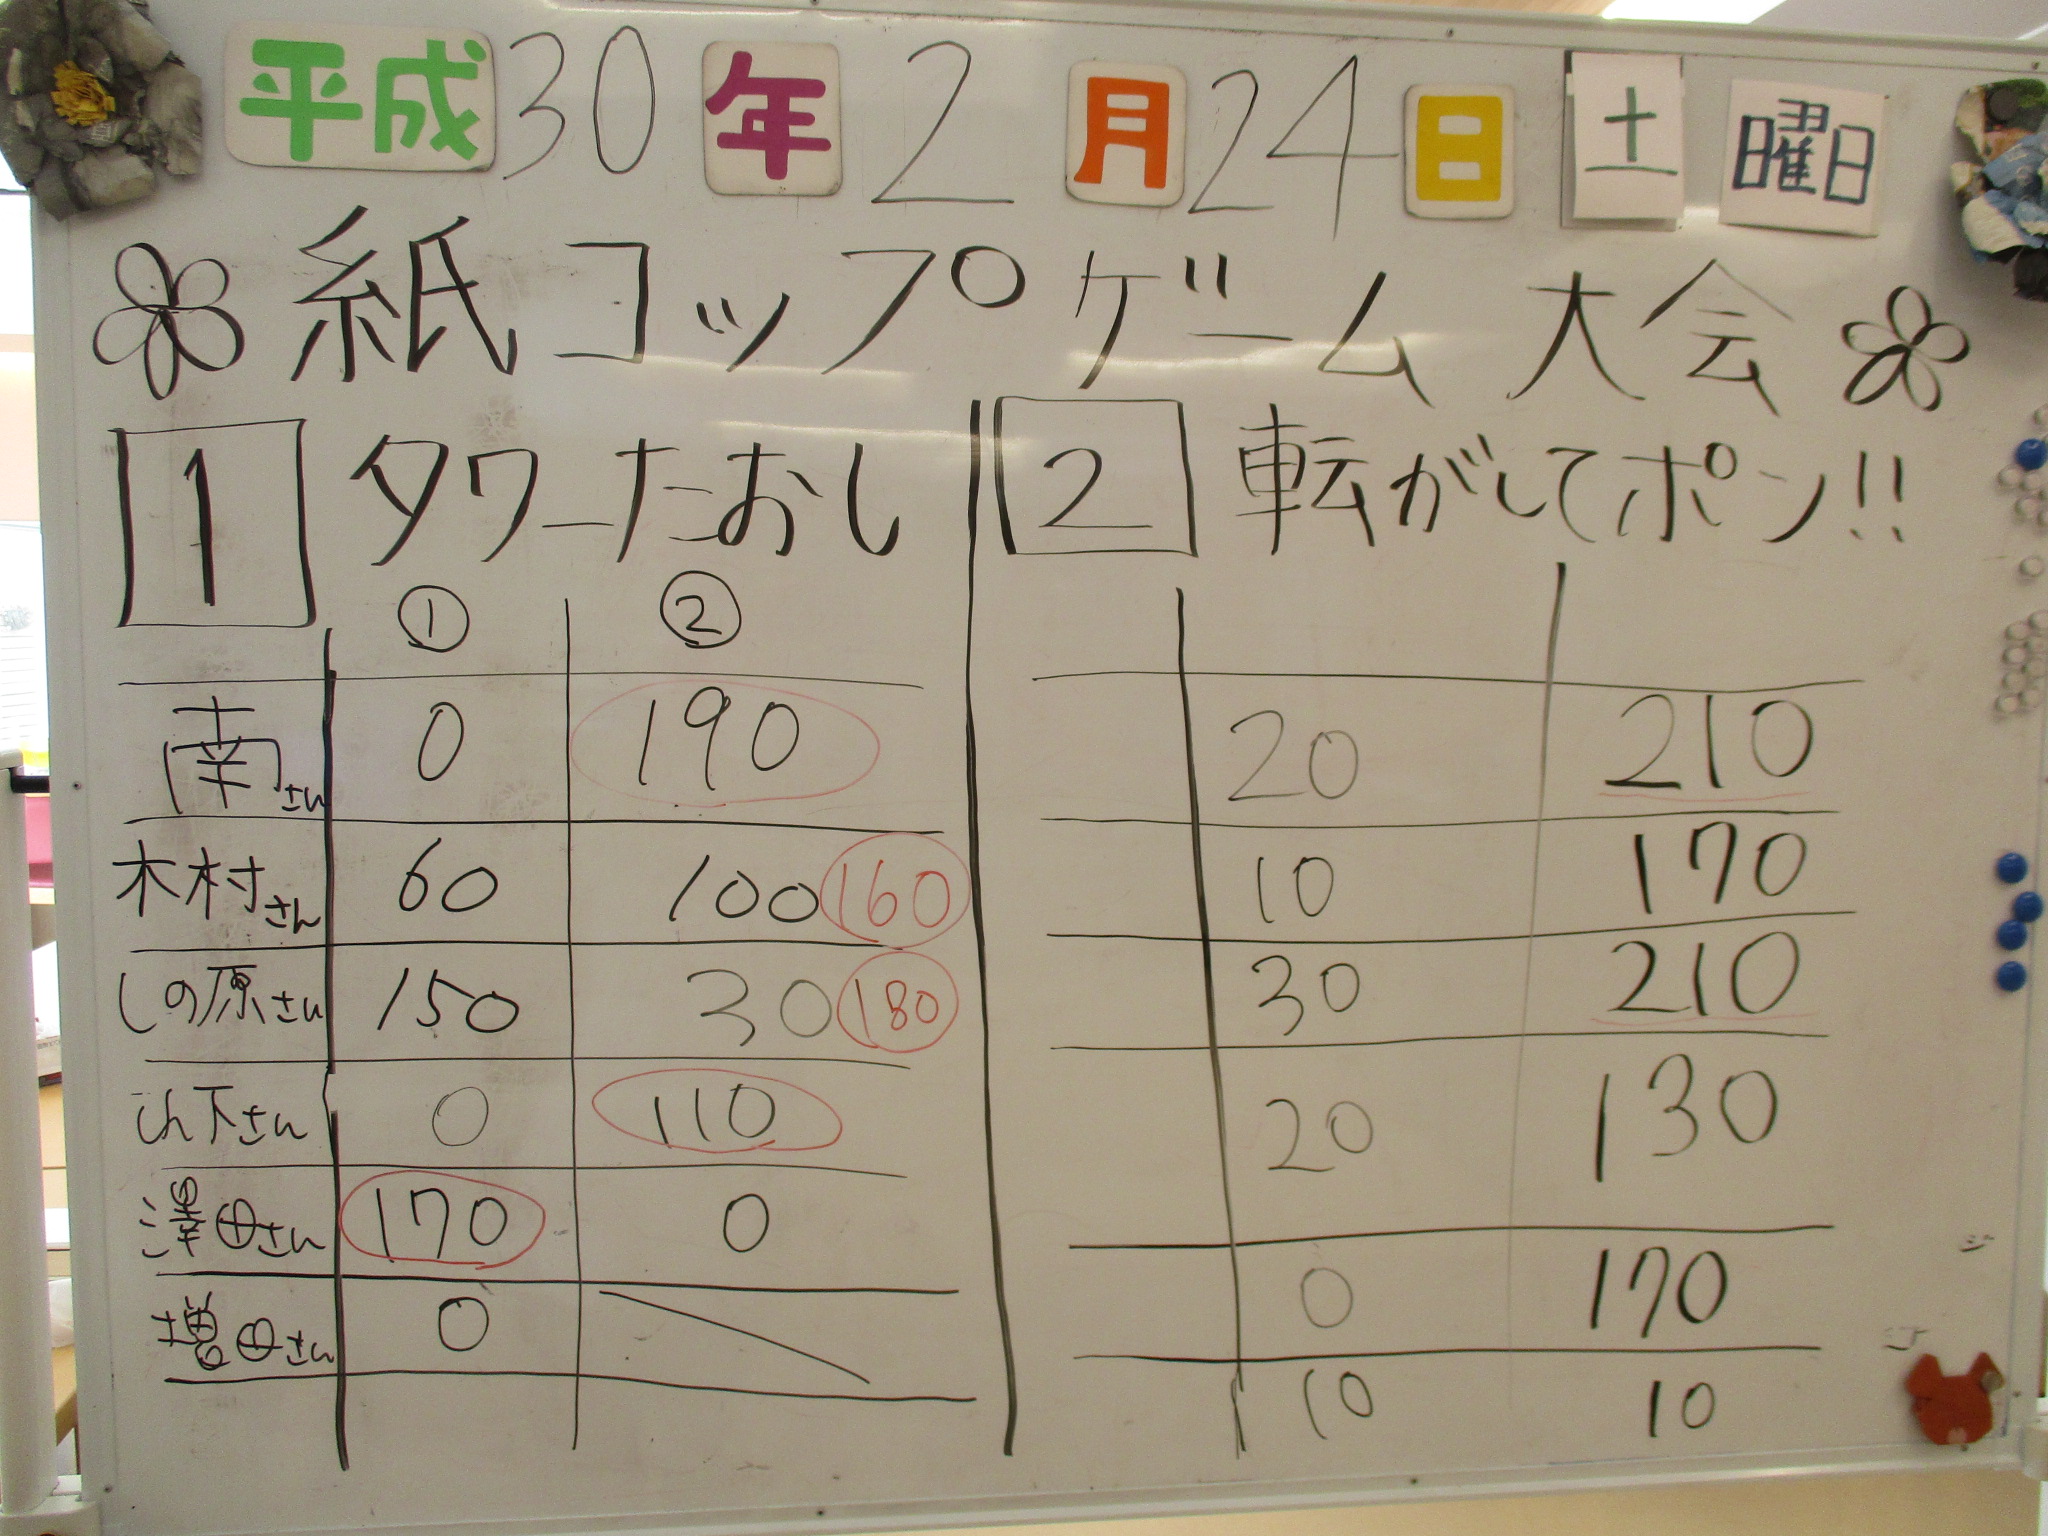 平成30年2月24日 土曜日
紙コップゲーム大会
1 タワーたおし
① ②
南さん 0 190
木村さん 60 100 160
しの原さん 150 30 180
下さん 0 110
澤田さん 170 0
増田さん 0
2 転がしてポン!!
20 210
10 170
30 210
20 130
0 170
10 10